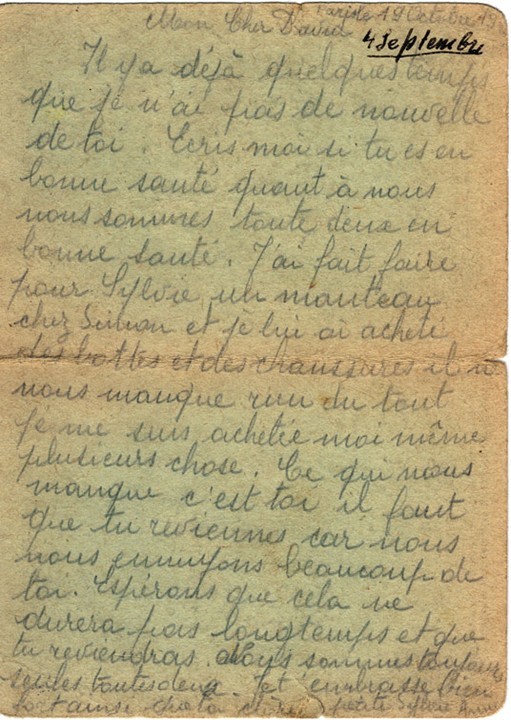 Paris le 19 Octobre 19
Mon Cher David
4 Septembre
Il y a déjà quelques temps
que je n'ai pas de nouvelle
de toi. Ecris moi si tu es en
bonne santé quant à nous
nous sommes toute deux en
bonne santé. J'ai fait faire
pour Sylvie un manteau
chez Simon et je lui ai acheté
des bottes et des chaussures il n
nous manque rien du tout
je me suis achetée moi même
plusieurs chose. Ce qui nous
manque c'est toi il faut
que tu reviennes car nous
nous ennuyons beaucoup de
toi. Espérons que cela ne
durera pas longtemps et que
tu reviendras. Nous sommes toujours
seules toutes deux. Je t'embrasse bien
fort ainsi que ta petite Sylvie